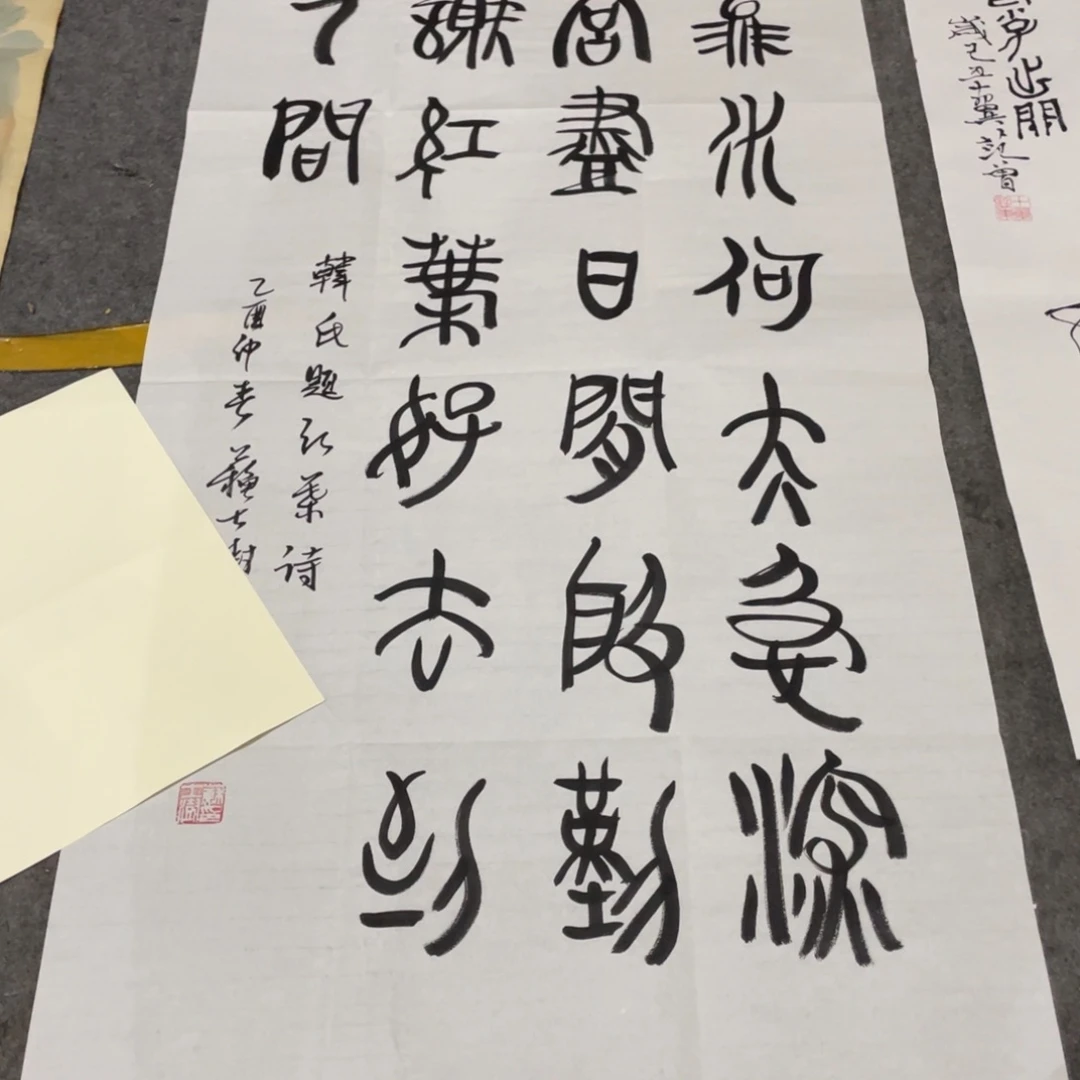 流水何太急深
宮盡日閒殷勤
謝紅葉好去到
人間
韓氏題紅葉诗
乙酉仲春蘇士
歲己丑十翼